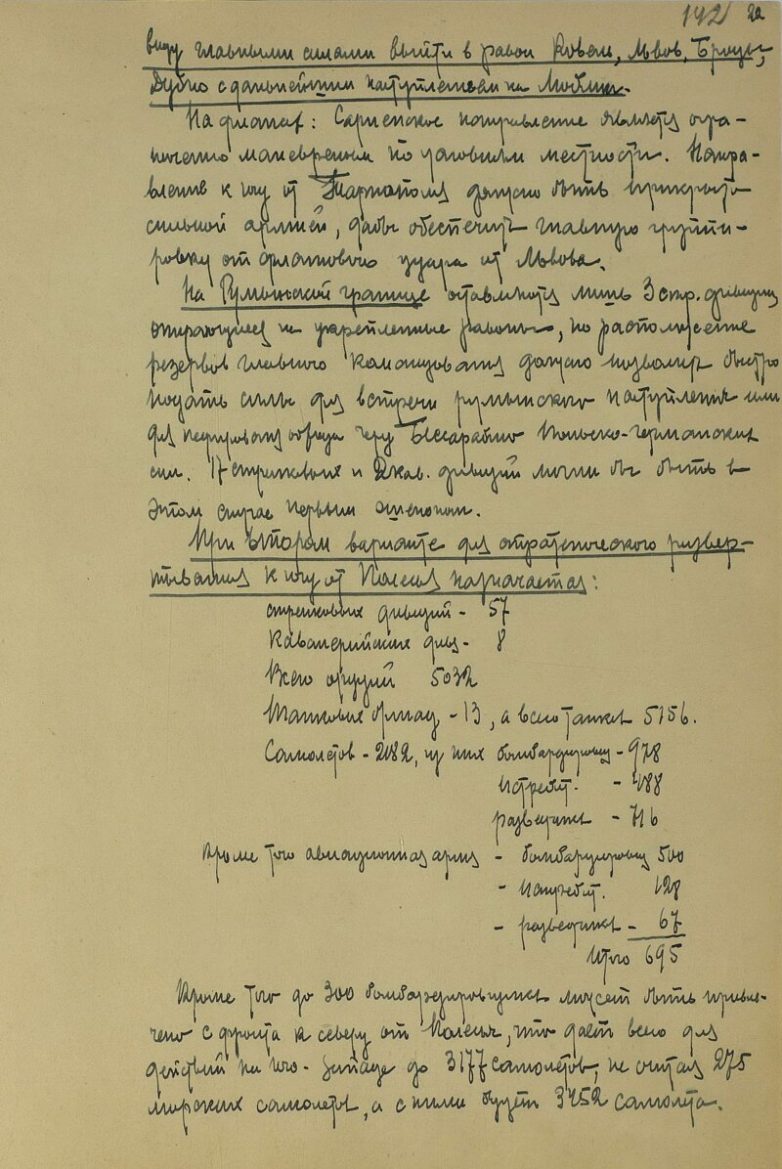 192 га
виду главными силами выйти в район Ковель, Львов, Броды,
Дубно с дальнейшим наступлением на Люблин.
На флангах: Сарненское направление является огра-
ниченно маневренным по условиям местности. Направ-
ление к югу от Тарнополя должно быть прикрыто
сильной армией, дабы обеспечить главную группи-
ровку от флангового удара от Львова.
На Румынской границе оставляются лишь 3 стр. дивизии
опирающиеся на укрепленные районы, но расположение
резервов главного командования должно позволить быстро
подать силы для встречи румынского наступления или
для переброски через Бессарабию польско-германских
сил. 17 стрелковых и 2 кав. дивизий могли бы быть в
этом случае первым эшелоном.
При втором варианте для стратегического развер-
тывания к югу от Полесья назначается:
стрелковых дивизий - 57
Кавалерийских див. - 8
Всего орудий 5032
Танковых бригад - 13, а всего танков 5156.
Самолетов - 2182, из них бомбардировщ - 978
истребит. - 488
разведчики - 716
Кроме того авиационная армия - бомбардировщ 500
- истребит. 128
- разведчики - 67
Итого 695
Кроме того до 300 бомбардировщиков может быть привле-
чено с фронта к северу от Полесья, что дает всего для
действий на юго-западе до 3177 самолетов, не считая 275
морских самолетов, а с ними будет 3452 самолета.